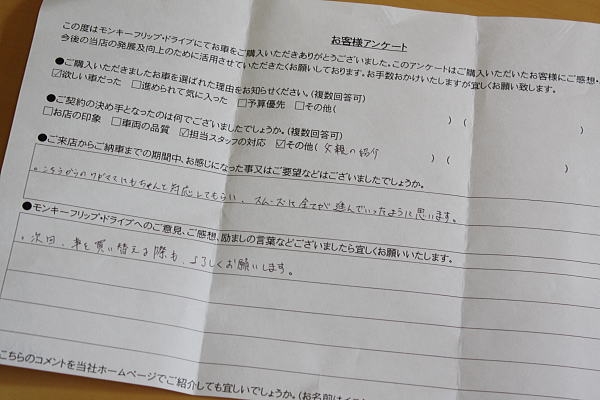 お客様アンケート
この度はモンキーフリップ・ドライブにてお車をご購入いただきありがとうございました。このアンケートはご購入いただいたお客様にご感想・
今後の当店の発展及向上のために活用させていただきたくお願いしております。お手数おかけいたしますが宜しくお願い致します。
●ご購入いただきましたお車を選ばれた理由をお知らせください。(複数回答可)
☑欲しい車だった □進められて気に入った □予算優先 □その他( )
●ご契約の決め手となったのは何でございましたでしょうか。(複数回答可)
□お店の印象 □車両の品質 ☑担当スタッフの対応 ☑その他( 父親の紹介 )
●ご来店からご納車までの期間中、お感じになった事又はご要望などはございましたでしょうか。
・こちらからのワガママにもちゃんと対応してもらい、スムーズに全てが進んでいったように思います。
●モンキーフリップ・ドライブへのご意見、ご感想、励ましの言葉などございましたら宜しくお願いいたします。
・次回、車を買い替える際も、よろしくお願いします。
こちらのコメントを当社ホームページでご紹介しても宜しいでしょうか。(お名前は